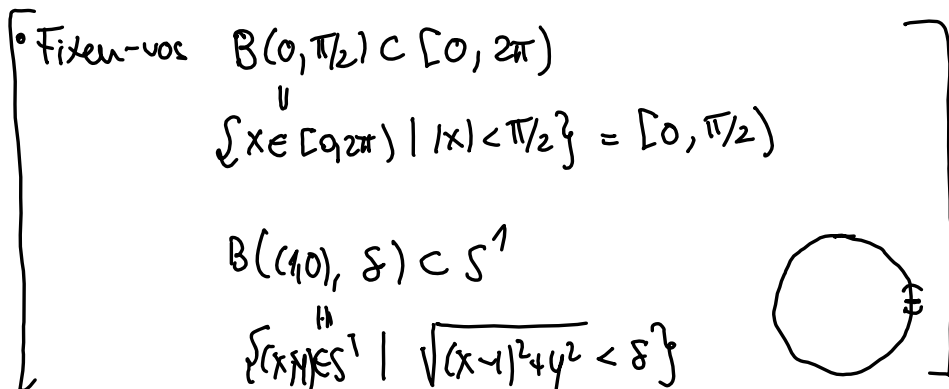 • Fixeu-vos B(0, π/2) ⊂ [0, 2π)
||
{x ∈ [0,2π) | |x| < π/2} = [0, π/2)
B((1,0), δ) ⊂ S¹
||
{(x,y) ∈ S¹ | √((x-1)²+y²) < δ}